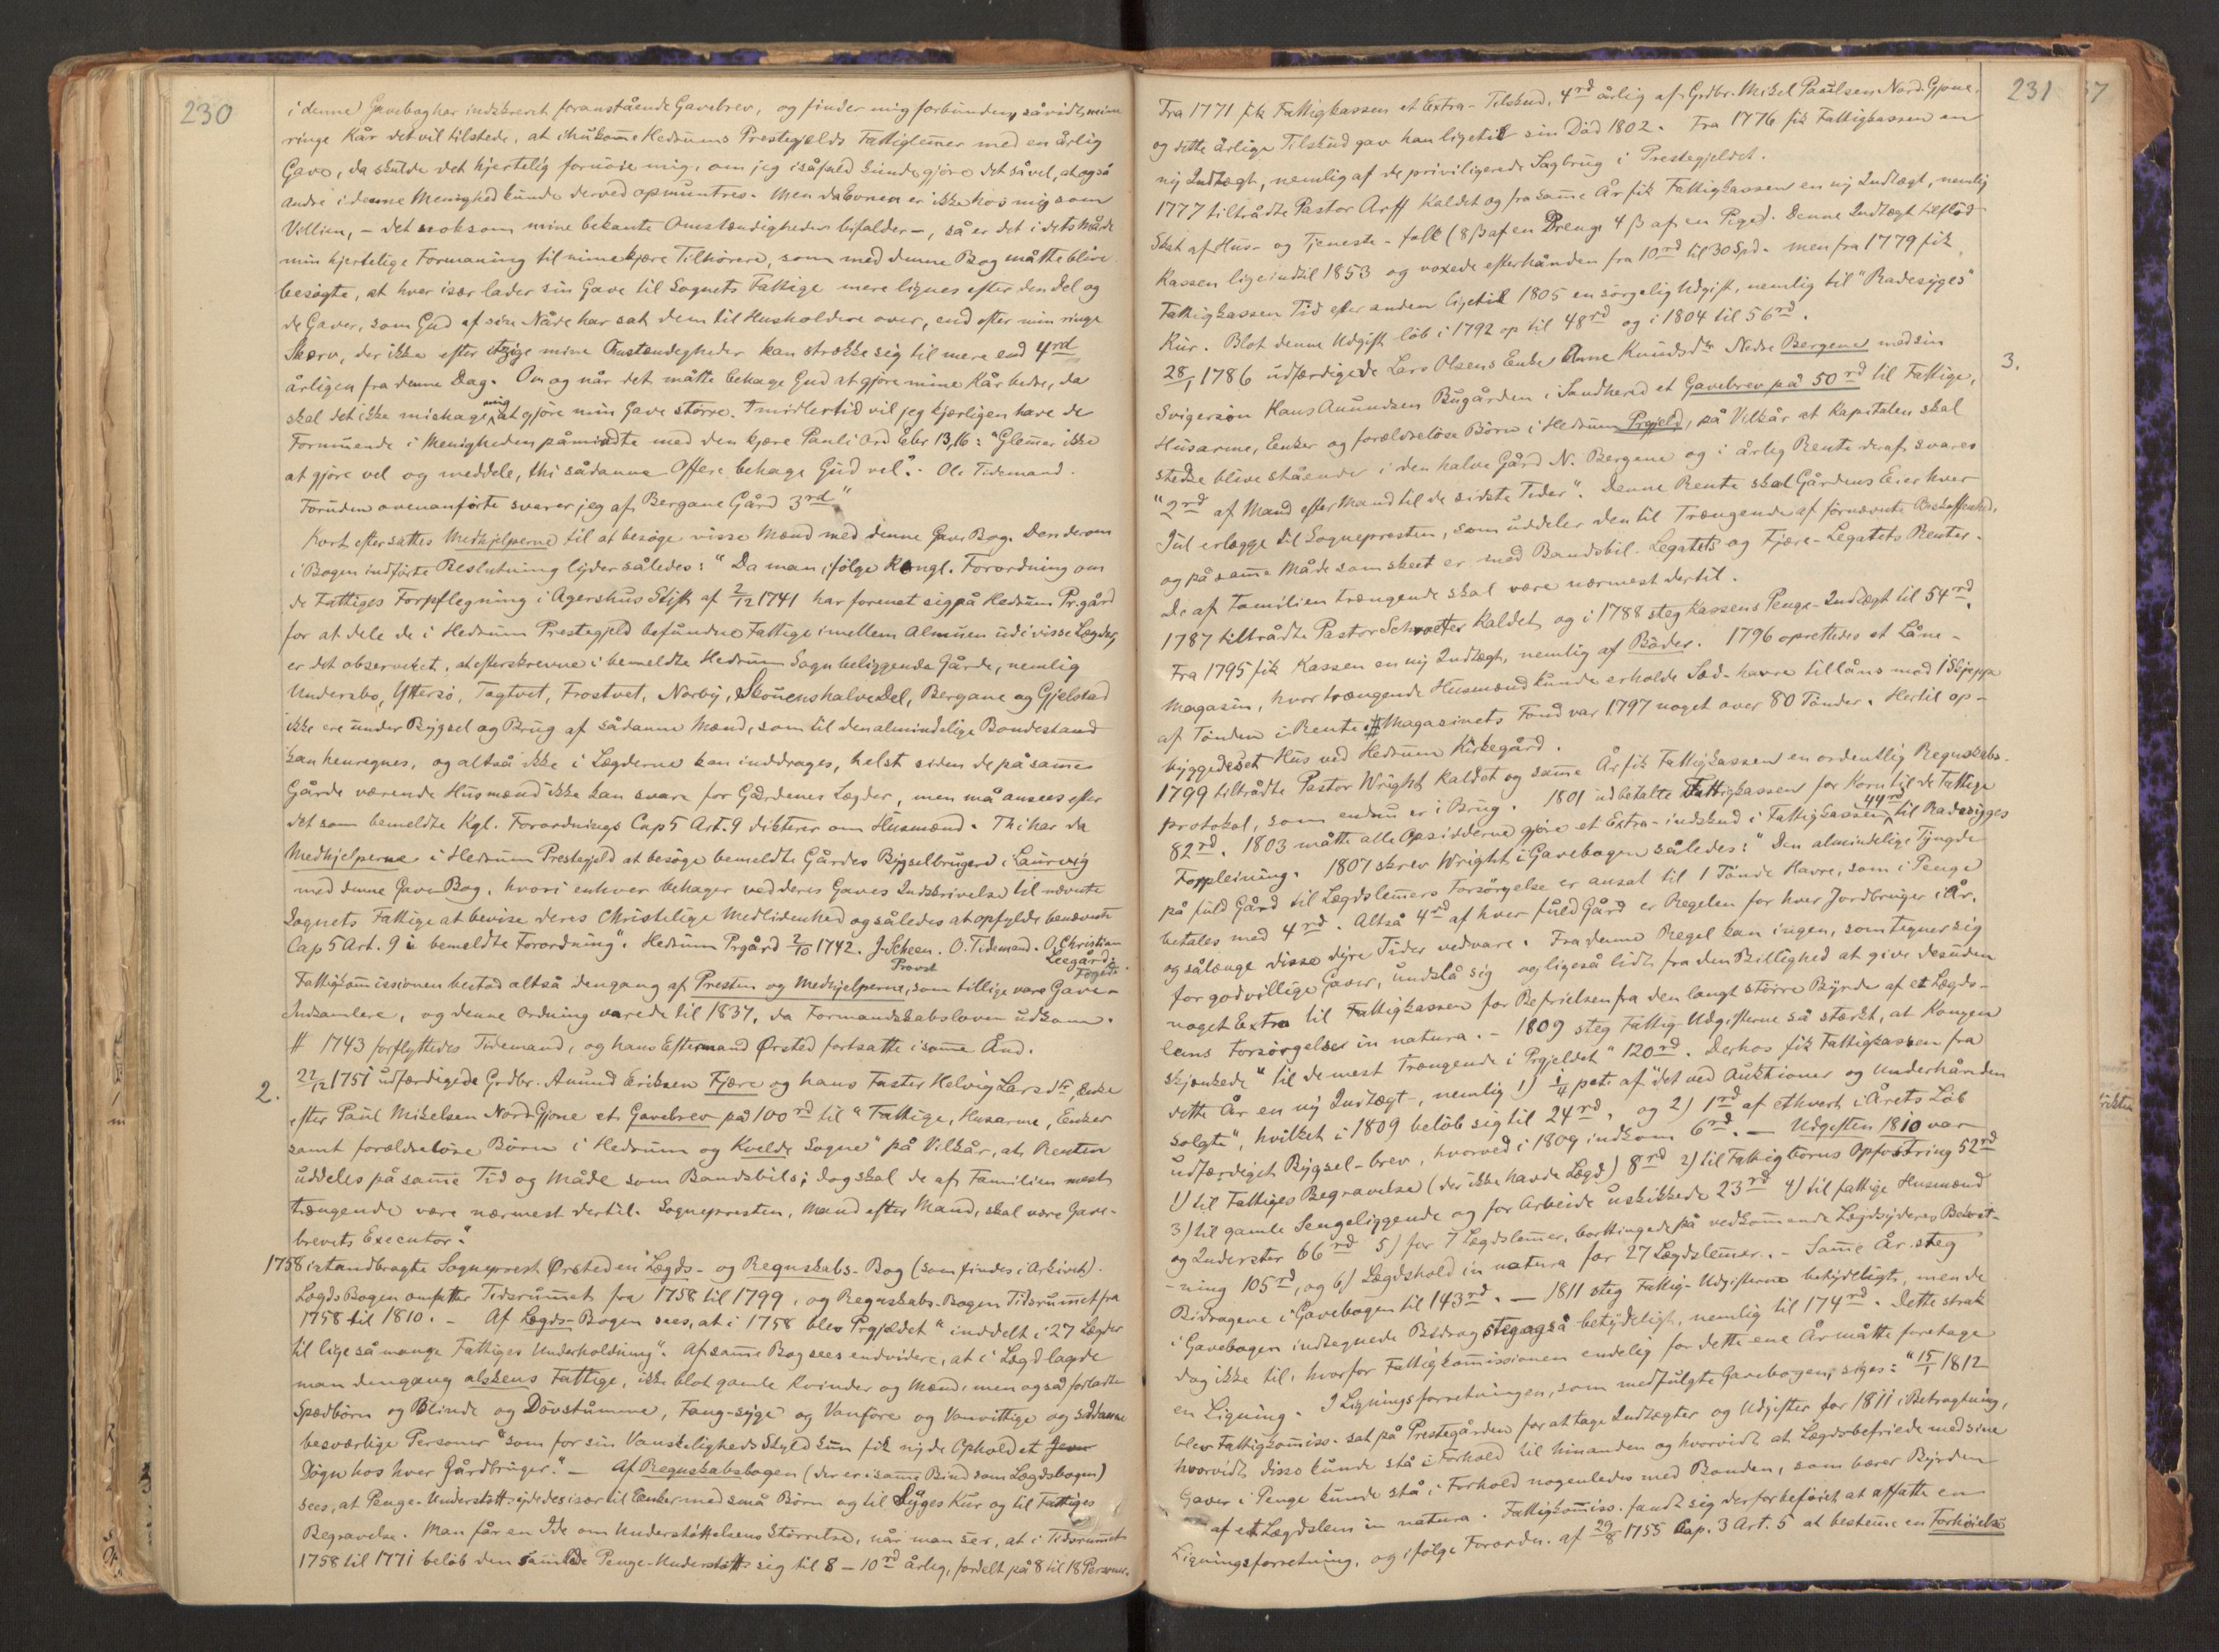 230
i denne Gavebog har indskrevet foranstående Gavebrev, og finder mig forbunden, såvidt mine
ringe Kår det vil tilstede, at ihukom̅e Hedrums Prestegjelds Fattiglem̅er med en årlig
Gave, da skulde det hjertelig fornöie mig, om jeg i såfald kunde gjöre det såvel, at også
andre i denne Menighed kunde derved opmuntres. Men da Evnen er ikke hos mig som
Villien, – det nok som mine bekante Omstændigheder befalder –, så er det i dets Måde
min hjertelige Formaning til mine kjære Tilhörere, som med denne Bog måtte blive
besögte, at hver især lader sin Gave til Sognets Fattige mere lignes efter den Del og
de Gaver, som Gud af sin Nåde har sat dem til Husholdere over, end efter min ringe
Skjerv, der ikke efter itzige mine Omstændigheder kan strække sig til mere end 4 rd
årligen fra denne Dag. Om og når det måtte behage Gud at gjöre mine Kår bedre, da
skal det ikke mishage mig at gjöre min Gave större. Imidlertid vil jeg kjærligen have de
Formuende i Menigheden påmindte med den kjære Pauli Ord Ebr 13,16: "Glem̅er ikke
at gjöre vel og meddele, thi sådanne Offere behage Gud vel". Ole Tidemand.
Foruden ovenanförte svarer jeg af Bergane Gård 3 rd"
Kort efter sattes Medhjelperne til at besöge visse Mænd med denne Gave Bog. Den derom
i Bogen indförte Beslutning lyder således: "Da man ifölge Kongl. Forordning om
de Fattiges Forpflegning i Agershus Stift af 2/12 1741 har forenet sig på Hedrum Pr.gård
for at dele de i Hedrum Prestegjeld befundne Fattige imellem Almuen udi visse Lægder,
er det observeret, at efterskrevne i bemeldte Hedrum Sogn beliggende Gårde, nemlig
Undersbo, Yttersö, Tagtvet, Frostvet, Norby, Skouens halve Del, Bergane og Gjelstad
ikke ere under Bygsel og Brug af sådanne Mænd, som til den almindelige Bondestand
kan henregnes, og altså ikke i Lægderne kan inddrages, helst siden de på sam̅e
Gårde værende Husmænd ikke kan svare for Gårdenes Lægder, men må ansees efter
det som bemeldte Kgl. Forordnings Cap 5 Art. 9 dikterer om Husmænd. Thi har da
Medhjelperne i Hedrum Prestegjeld at besöge bemeldte Gårdes Bygselbrugere i Laurvig
med denne Gave Bog, hvori enhver behager ved deres Gaves Indskrivelse til nævnte
Sognets Fattige at bevise deres Christelige Medlidenhed og således at opfylde benævnte
Cap 5 Art. 9 i bemeldte Forordning". Hedrum Prgård 2/10 1742. J. Scheen. O. Tidemand. O. Christian
Provst Leegård, Foged.
Fattigkom̅issionen bestod altså dengang af Presten og Medhjelperne, som tillige vare Gave-
Indsamlere, og denne Ordning varede til 1837, da Formandskabsloven udkom.
# 1743 forflyttedes Tidemand, og hans Eftermand Ørsted fortsatte i sam̅e Ånd.
2. 22/12 1751 udfærdigede Grdbr. Anund Eriksen Fjære og hans Faster Helvig Larsdtr, Enke
efter Paul Mikelsen Nord-Gjone et Gavebrev på 100 rd til "Fattige, Husarme, Enker
samt forældrelöse Börn i Hedrum og Kvelde Sogne" på Vilkår, at Renten
uddeles på sam̅e Tid og Måde som Bandsbils; dog skal de af Familien mest
trængende være nærmest dertil. Sognepresten, Mand efter Mand, skal være Gave-
brevets Executor".
1758 istandbragte Sogneprest Ørsted en Lægds- og Regnskabs-Bog (som findes i Arkivet).
Lægds Bogen omfatter Tidsrum̅et fra 1758 til 1799, og Regnskabs-Bogen Tidsrum̅et fra
1758 til 1810. – Af Lægds-Bogen sees, at i 1758 blev Prgjeldet "inddelt i 27 Lægder
til lige så mange Fattiges Underholdning". Af sam̅e Bog sees endvidere, at i Lægd lagde
man dengang alskens Fattige, ikke blot gamle Kvinder og Mænd, men også forladte
Spædbörn og Blinde og Dövstumme, Fang-syge og Vanföre og Vanvittige og sådanne
besværlige Personer "som for sin Vanskeligheds Skyld kun fik nyde Ophold et Jevn
Dögn hos hver Gårdbruger." – Af Regnskabsbogen (der er i sam̅e Bind som Lægdsbogen)
sees, at Penge-Understött. ydedes især til Enker med små Börn og til Syges Kur og til Fattiges
Begravelse. Man får en Ide om Understöttelsens Störrelse, når man ser, at i Tidsrum̅et
1758 til 1771 belöb den samlede Penge-Understött. sig til 8 – 10 rd årlig, fordelt på 8 til 18 Personer.
231
Fra 1771 fik Fattigkassen et Extra-Tilskud, 4 rd årlig af Grdbr. Mikel Paulsen Nord-Gjone,
og dette årlige Tilskud gav han ligetil sin Död 1802. Fra 1776 fik Fattigkassen en
ny Indtægt, nemlig af de priviligerede Sagbrug i Prestegjeldet.
1777 tiltrådte Pastor Arff Kaldet og fra sam̅e År fik Fattigkassen en ny Indtægt, nemlig
Skat af Hus- og Tjeneste-folk (8 β af en Dreng, 4 β af en Pige). Denne Indtægt tilflöd
Kassen lige indtil 1853 og voxede efterhånden fra 10 rd til 30 Spd. Men fra 1779 fik
Fattigkassen Tid efter anden ligetil 1805 en sörgelig Udgift, nemlig til "Radesyges"
Kur. Blot denne Udgift löb i 1792 op til 48 rd og i 1804 til 56 rd.
3. 28/1 1786 udfærdigede Lars Olsens Enke Anne Knudsdtr Nedre Bergene med sin
Svigersön Hans Anundsen Bugården i Sandherd et Gavebrev på 50 rd til Fattige,
Husarme, Enker og forældrelöse Börn i Hedrum Prgjeld, på Vilkår at Kapitalen skal
stedse blive stående i den halve Gård N. Bergene og i årlig Rente deraf svares
"2 rd af Mand efter Mand til de sidste Tider". Denne Rente skal Gårdens Eier hver
Jul erlægge til Sognepresten, som uddeler den til Trængende af fornævnte Beskaffenhed,
og på sam̅e Måde som skeet er med Bandsbil-Legatets og Fjære-Legatets Renter.
De af Familien trængende skal være nærmest dertil.
1787 tiltrådte Pastor Schroeter Kaldet, og i 1788 steg Kassens Penge-Indtægt til 54 rd.
Fra 1795 fik Kassen en ny Indtægt, nemlig af Böder. 1796 oprettedes et Låne-
magasin, hvor trængende Husmænd kunde erholde Sæd-havre tillåns mod 1 Skjeppe
af Tönden i Rente. # Magasinets Fond var 1797 noget over 80 Tönder. Hertil op-
byggedes et Hus ved Hedrum Kirkegård.
1799 tiltrådte Pastor Wright Kaldet og sam̅e År fik Fattigkassen en ordentlig Regnskabs-
protokol, som endnu er i Brug. 1801 udbetalte Fattigkassen for Korn til de Fattige
82 rd. 1803 måtte alle Opsidderne gjöre et Extra-indskud i Fattigkassen 44 rd til Radesyges
Forpleining. 1807 skrev Wright i Gavebogen således: "Den almindelige Tyngde
på fuld Gård til Lægdslem̅ers Forsörgelse er ansat til 1 Tönde Havre, som i Penge
betales med 4 rd. Altså 4 rd af hver fuld Gård er Regelen for hver Jordbruger i År,
og sålænge disse dyre Tider vedvare. Fra denne Regel kan ingen, som tegner sig
for godvillige Gaver, undslå sig og ligeså lidt fra den Billighed at give desuden
noget Extra til Fattigkassen for Befrielsen fra den langt större Byrde af et Lægds-
lems Forsörgelse in natura. – 1809 steg Fattig-Udgifterne så stærkt, at Kongen
skjænkede "til de mest Trængende i Prgjeldet" 120 rd. Derhos fik Fattigkassen fra
dette År en ny Indtægt, nemlig 1) 1/4 pct. af "det ved Auktioner og Underhånden
solgte", hvilket i 1809 belöb sig til 24 rd, og 2) 1 rd af ethvert i Årets Löb
udfærdiget Bygsel-brev, hvorved i 1809 indkom 6 rd. – Udgiften 1810 var
1) til Fattiges Begravelse (der ikke havde Lægd) 8 rd 2) til Fattigbörns Opfostring 52 rd
3) til gamle Sengeliggende og for Arbeide uskikkede 23 rd 4) til fattige Husmænd
og Inderster 66 rd 5) for 7 Lægdslem̅er, borttingede på vedkom̅ende Lægdsyderes Bekost-
-ning 105 rd, og 6) Lægdshold in natura for 27 Lægdslem̅er. – Sam̅e År steg
Bidragene i Gavebogen til 143 rd. – 1811 steg Fattig-Udgifterne betydeligt, men de
i Gavebogen indtegnede Bidrag steg også betydeligt, nemlig til 174 rd. Dette strak
dog ikke til, hvorfor Fattigkom̅issionen endelig for dette ene År måtte foretage
en Ligning. I Ligningsforretningen, som medfulgte Gavebogen, siges: "15/1 1812
blev Fattigkom̅iss. sat på Prestegården for at tage Indtægter og Udgifter for 1811 i Betragtning,
hvorvidt disse kunde stå i Forhold til hinanden og hvorvidt at Lægdsbefriede med sine
Gaver i Penge kunde stå i Forhold nogenledes med Bonden, som bærer Byrden
af et Lægdslem in natura. Fattigkom̅iss. fandt sig derfor beföiet at affatte en
Ligningsforretning, og ifölge Forordn. af 29/8 1755 Cap. 3 Art. 5 at bestem̅e en Forhöielse